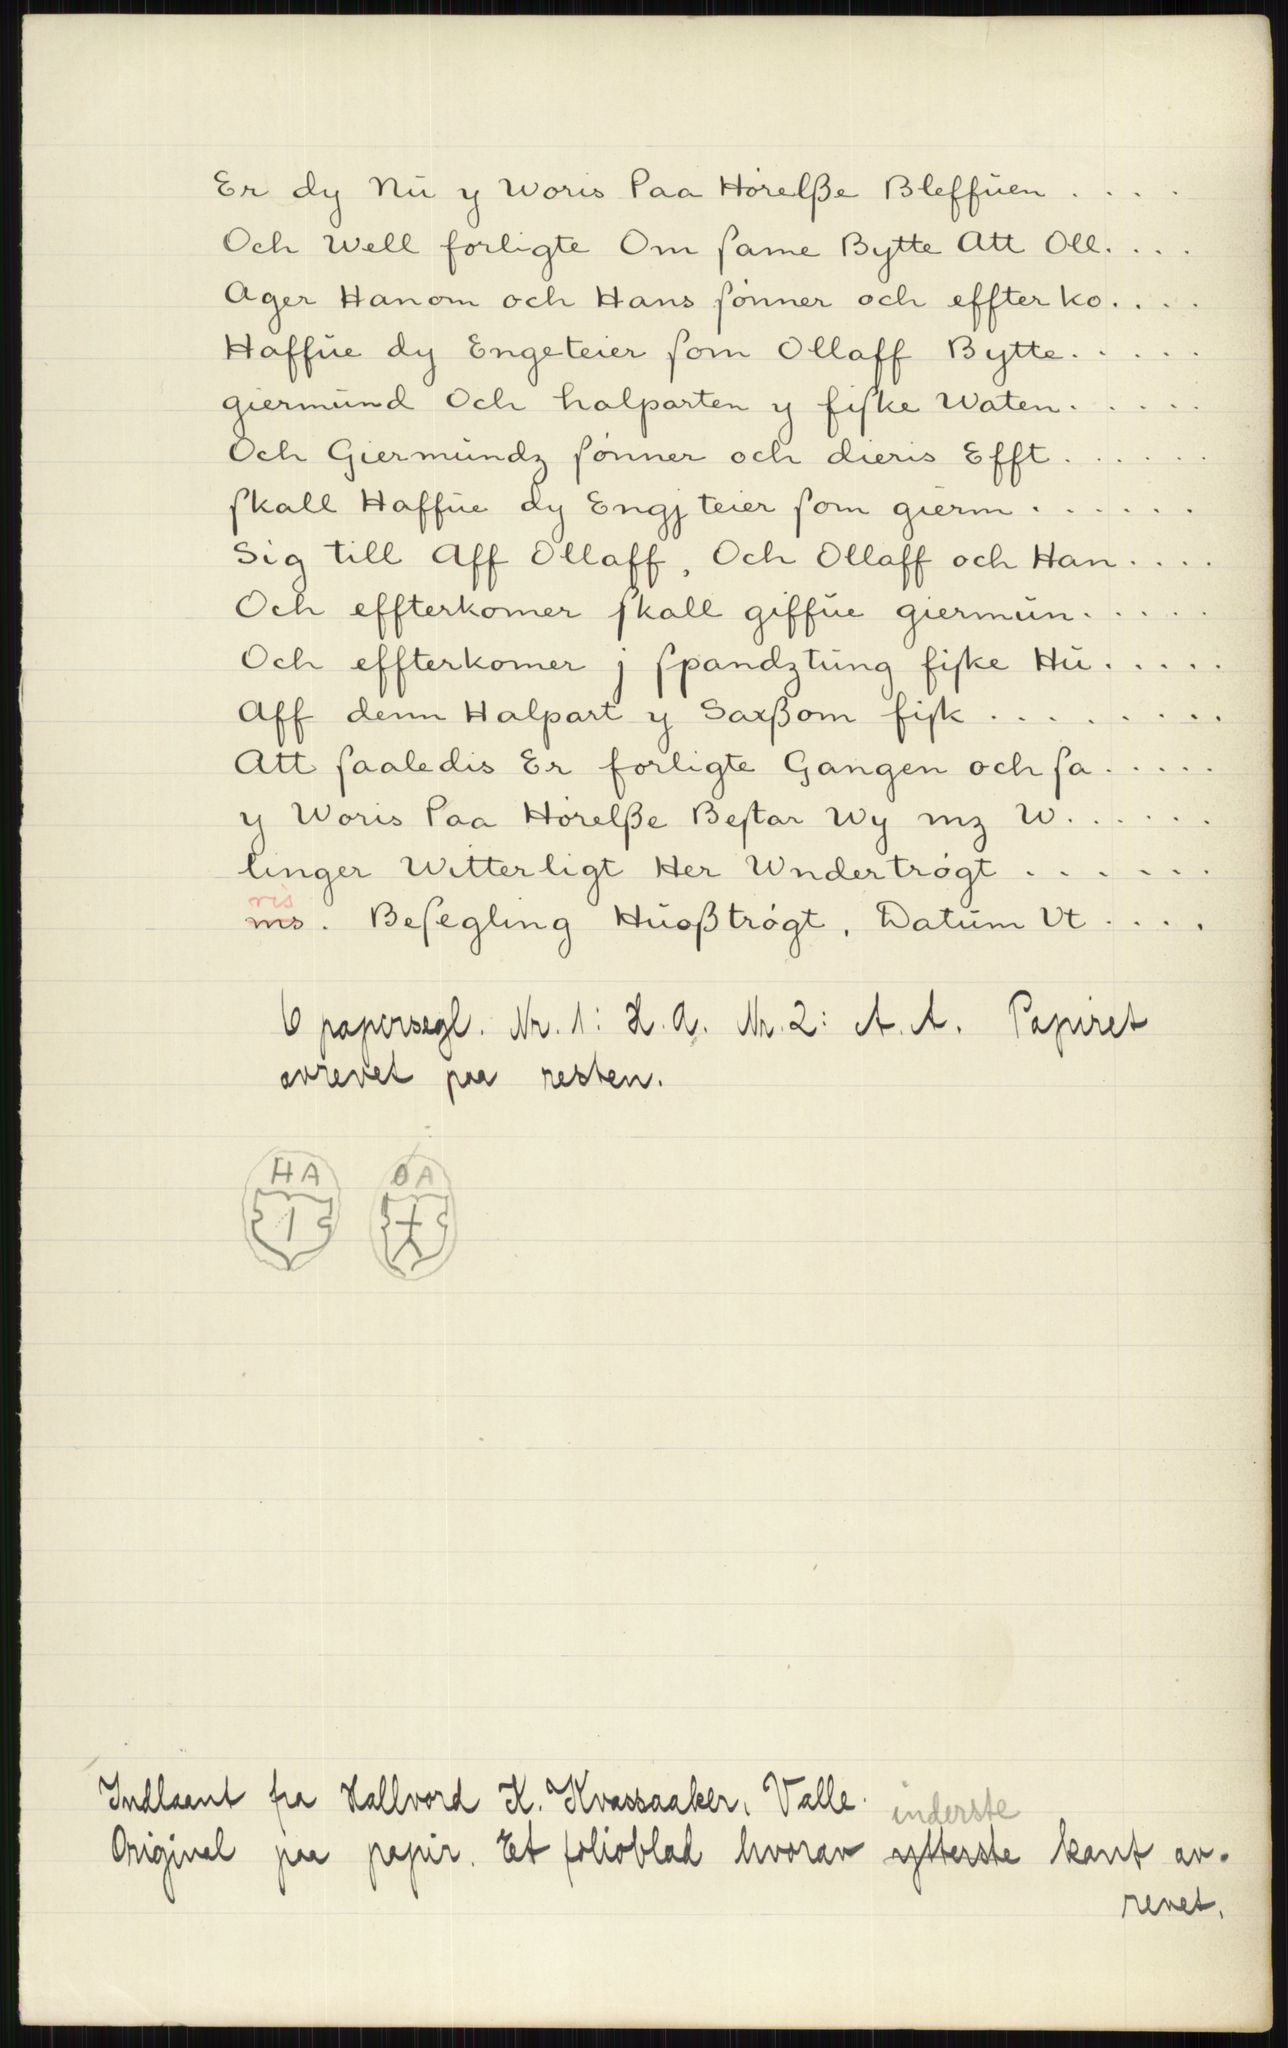 Er dy Nŭ y Woris Paa Hørelße Bleffŭen . . . .
Och Well forligte Om ſame Bytte Att Oll. . . .
Ager Hanom och Hans ſønner och effterko. . . .
Haffŭe dy Engeteier ſom Ollaff Bytte. . . . .
giermŭnd Och halparten y fiſke Waten. . . . .
Och Giermŭndz ſønner och dieris Efft . . . . . .
ſkall Haffŭe dy Engj teier ſom gierm . . . . . .
Sig till Aff Ollaff, Och Ollaff och Han . . . .
Och effterkomer ſkall giffŭe giermŭn. . . . .
Och effterkomer j ſpandztŭng fiſke Hŭ. . . . .
Aff denn Halpart y Saxßom fiſk . . . . . . . .
Att ſaaledis Er forligte Gangen och ſa . . . . .
y Woris Paa Hørelße Beſtar Wy mz W. . . . . .
linger Witterligt Her Wndertrøgt . . . . . .
ris
ms. Beſegling Hŭoßtrøgt, Datŭm Vt . . . .
6 papirsegl. Nr. 1: H. A. Nr. 2: A. A. Papiret
avrevet paa resten.
HA ØA
Indlaant fra Hallvord K. Kvassaaker, Valle.
inderste
Original paa papir. Et folioblad hvorav ytterste kant av-
revet.